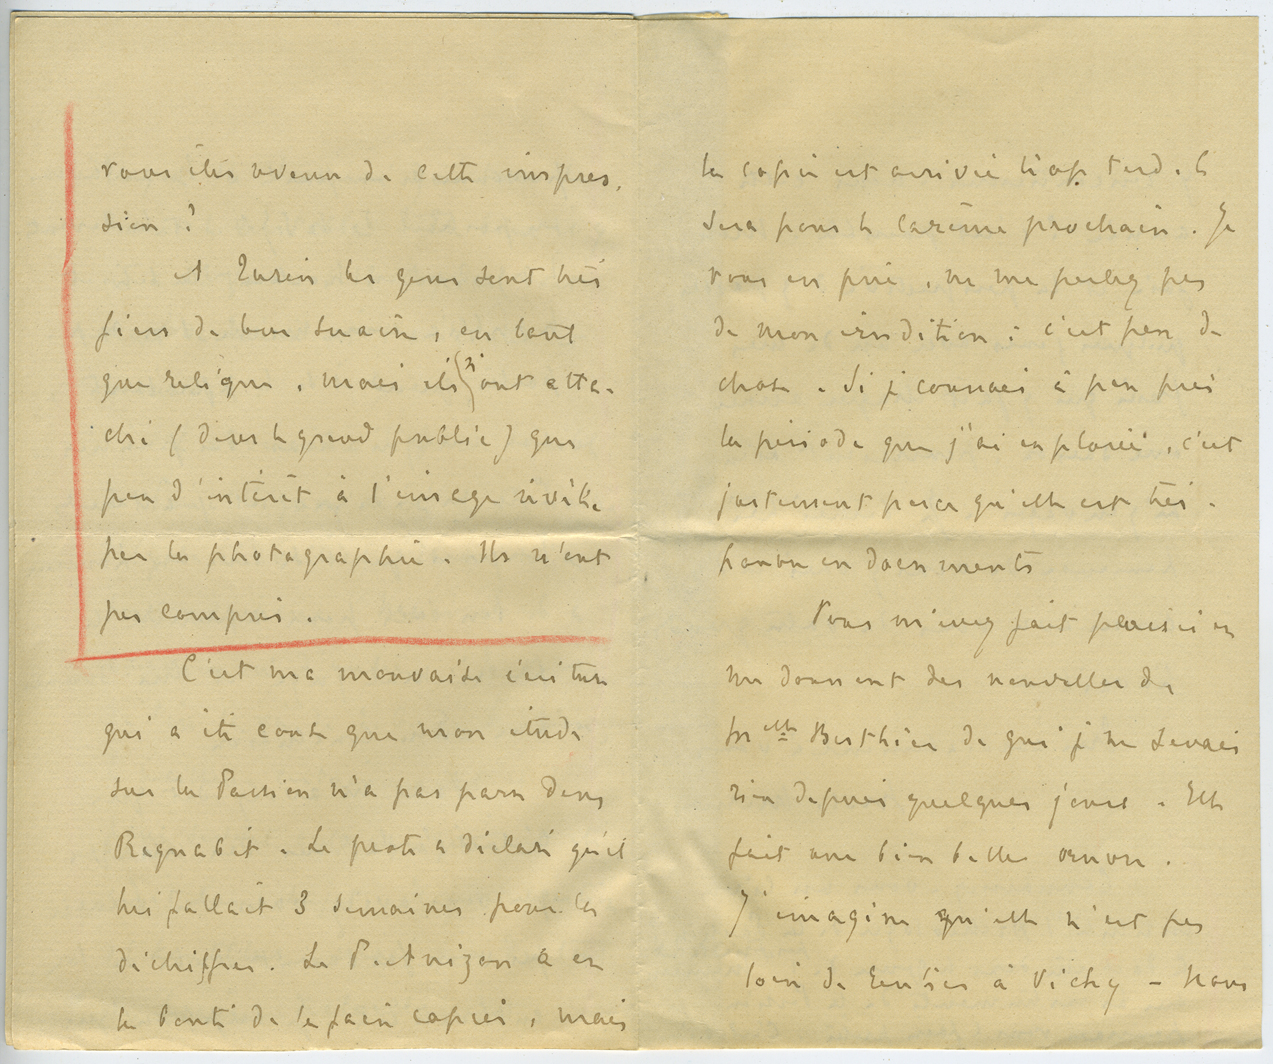 vous êtes revenu de cette impres-
sion ?
A Turin les gens sont très
fiers de leur suaire, en tant
que relique, mais ils (n')ont atta-
ché (dans le grand public) que
peu d'intérêt à l'image révélée
par la photographie. Ils n'ont
pas compris.
C'est ma mauvaise écriture
qui a été cause que mon étude
sur la Passion n'a pas paru dans
Regnabit. Le prote a déclaré qu'il
lui fallait 3 semaines pour la
déchiffrer. Le P. a eu
la bonté de la faire copier, mais
la copie est arrivée trop tard. Ce
sera pour le carême prochain. Je
vous en prie, ne me parlez pas
de mon érudition : c'est peu de
chose. Si je connais à peu près
la période que j'ai explorée, c'est
justement parce qu'elle est très
pauvre en documents
Vous m'avez fait plaisir en
me donnant des nouvelles de
Melle Berthier de qui je ne savais
rien depuis quelques jours. Elle
fait une bien belle œuvre.
J'imagine qu'elle n'est pas
loin de rentrer à Vichy - Nous